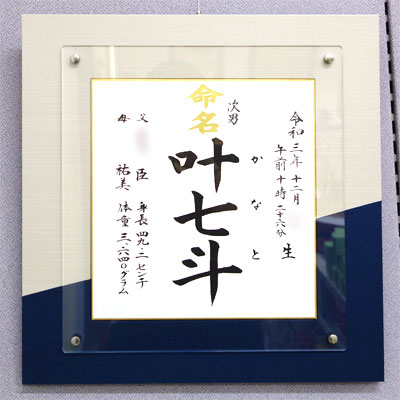 令和三年十二月
午前十時二十六分
生
次男
かなと
命名
叶七斗
父 臣
母 祐美
身長 四九・二センチ
体重 三、六四〇グラム